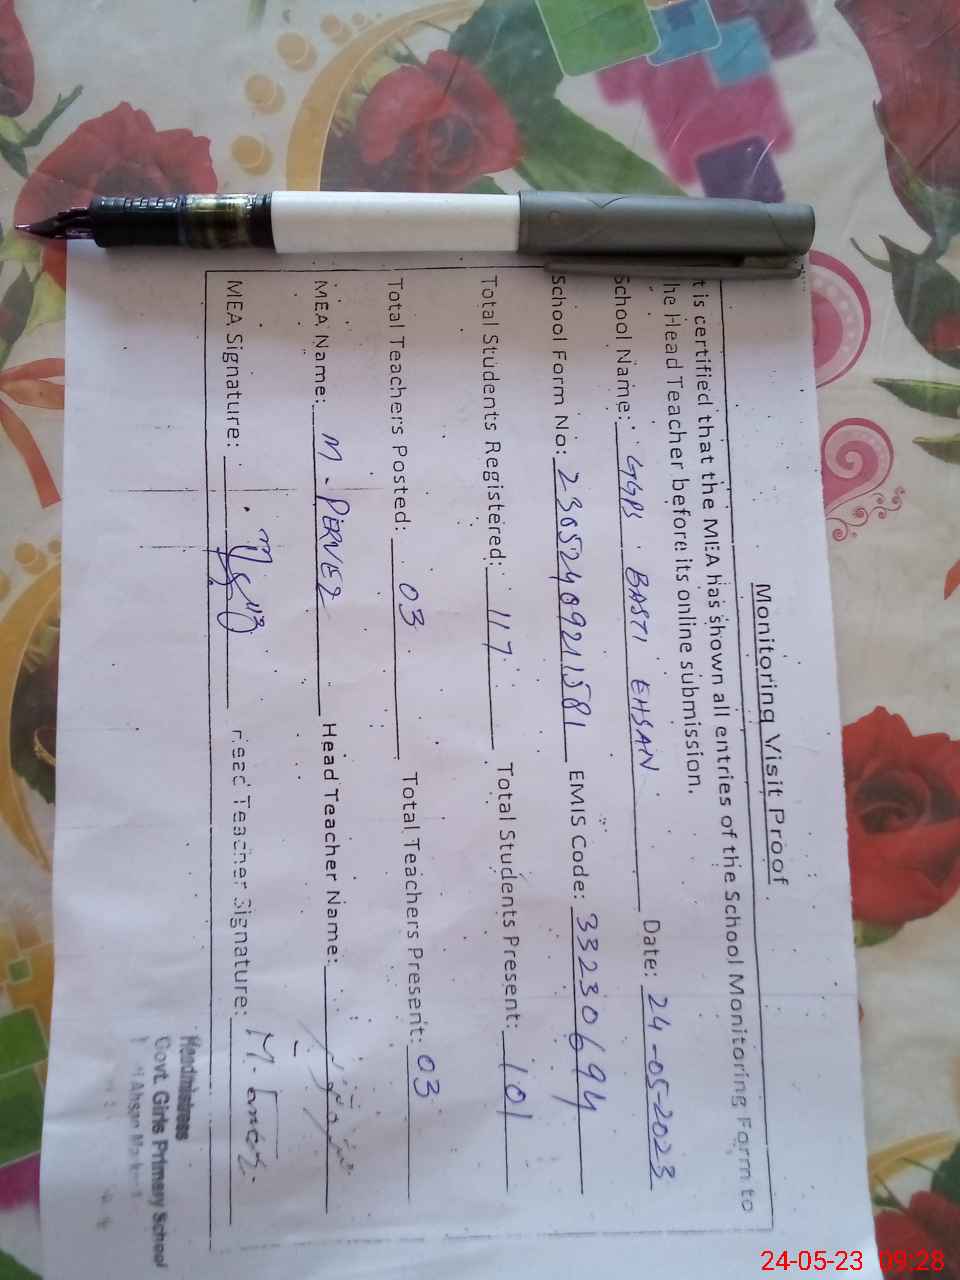 Monitoring Visit Proof
t is certified that the MEA has shown all entries of the School Monitoring Form to
he Head Teacher before its online submission.
School Name: GGPS BASTI EHSAN Date: 24-05-2023
School Form No: 23052409211581 EMIS Code: 33230694
Total Students Registered: 117 Total Students Present: 101
Total Teachers Posted: 03 Total Teachers Present: 03
MEA Name: M. PERVEZ Head Teacher Name:
MEA Signature: Head Teacher Signature:
Headmistress
Govt. Girls Primary School
Ahsan
24-05-23 09:28